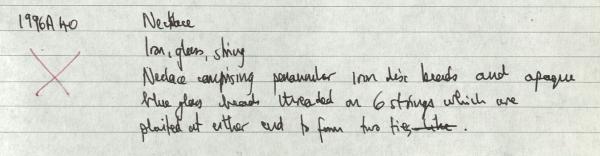 1996A40 Necklace
Iron, glass, string
Neclace comprising penannular iron disc beads and opaque
blue glass beads threaded on 6 strings which are
plaited at either end to form two ties like.